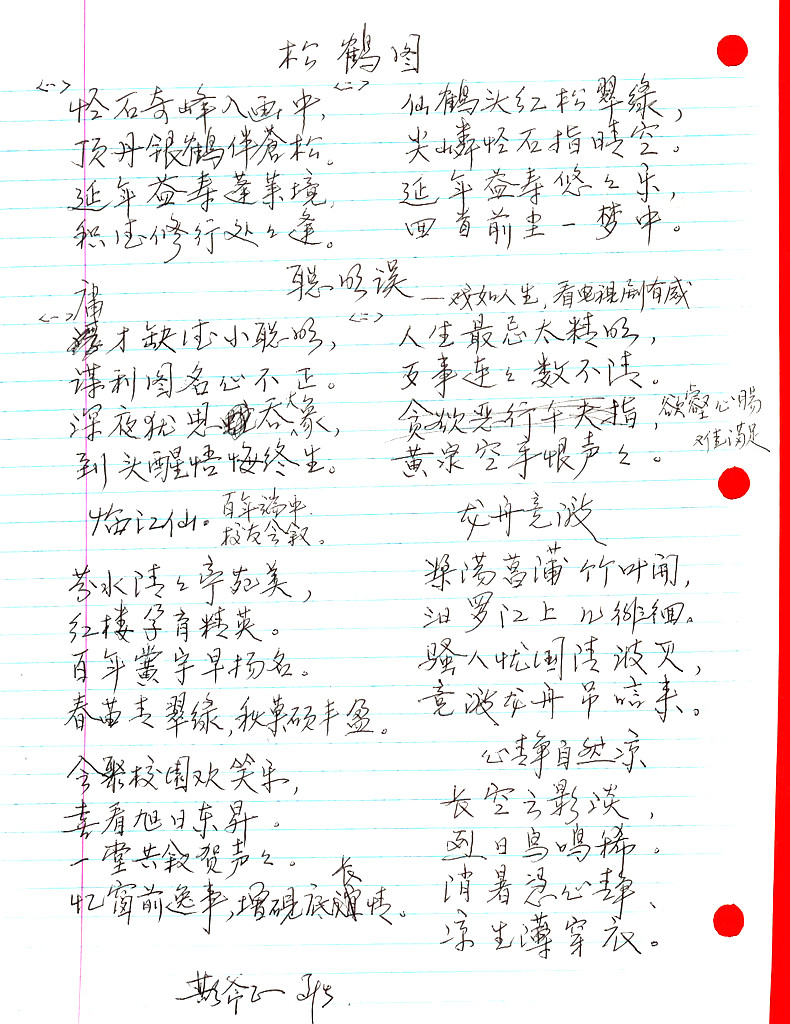 松鹤图
<一>
怪石奇峰入画中，
顶丹银鹤伴蒼松。
延年益寿蓬莱境，
积德修行处々逢。
<二>
仙鹤头红松翠綠，
尖嶙怪石指晴空。
延年益寿悠々乐，
回首前尘一梦中。
聪明误 —戏如人生，看电视剧有感
<一>
庸才缺德小聪明，
谋利图名心不正。
深夜犹思吞大象，
到头醒悟悔终生。
<二>
人生最忌太精明，
歹事连々数不清。
贪欲恶行千夫指，
欲壑心腸难满足
黄泉空手恨声々。
临江仙。百年端中
校友会叙。
芬水清々亭苑美，
红楼孕育精英。
百年黉宇早扬名。
春苗青翠綠，秋菓硕丰盈。
会聚校園欢笑乐，
喜看旭日东昇。
一堂共叙贺声々。
忆窗前逸事，增砚底長情。
龙舟竞渡
桨荡菖蒲竹叶開，
汨罗江上几徘徊。
骚人忧国清波灭，
竞渡龙舟吊唁来。
心静自然凉
长空云影淡，
烈日鸟鸣稀。
消暑憑心静、
凉生薄穿衣。